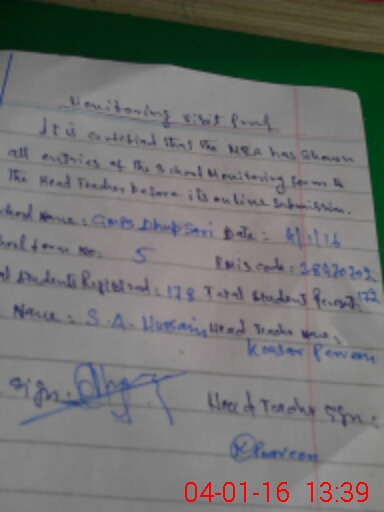 Monitoring visit Proof
It is certified that the MEA has shown
all entries of the school Monitoring form to
the Head Teacher before its online submission.
chool Name: GMPS Dhup Sari Date: 4/1/16
hool form No: 5 Emis code: 38420202
al Students Registered: 178 Total Student Present: 172
Name: S.A. Hussain Head Teacher Name:
Kousar Perveen
Sign: Head Teacher Sign:
KPerveen
04-01-16 13:39